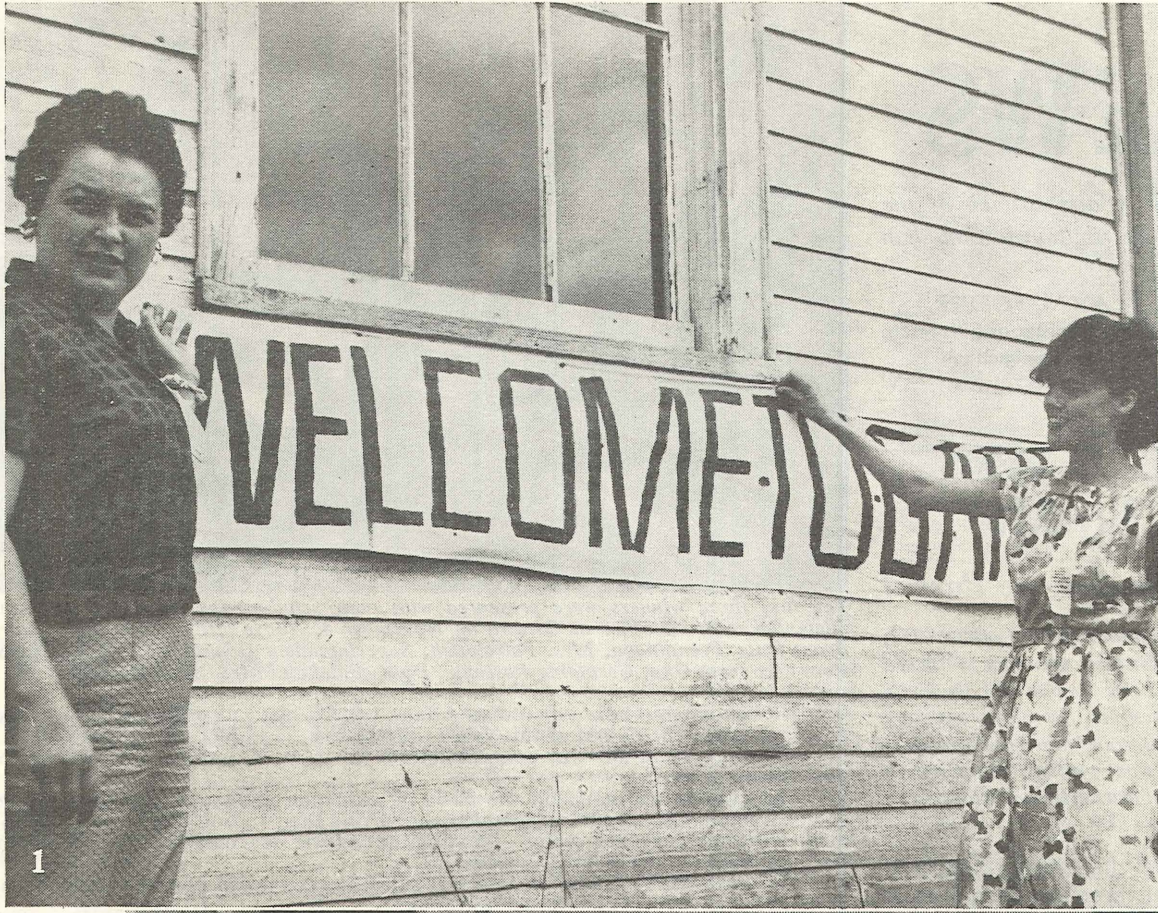 WELCOME·TO·
1